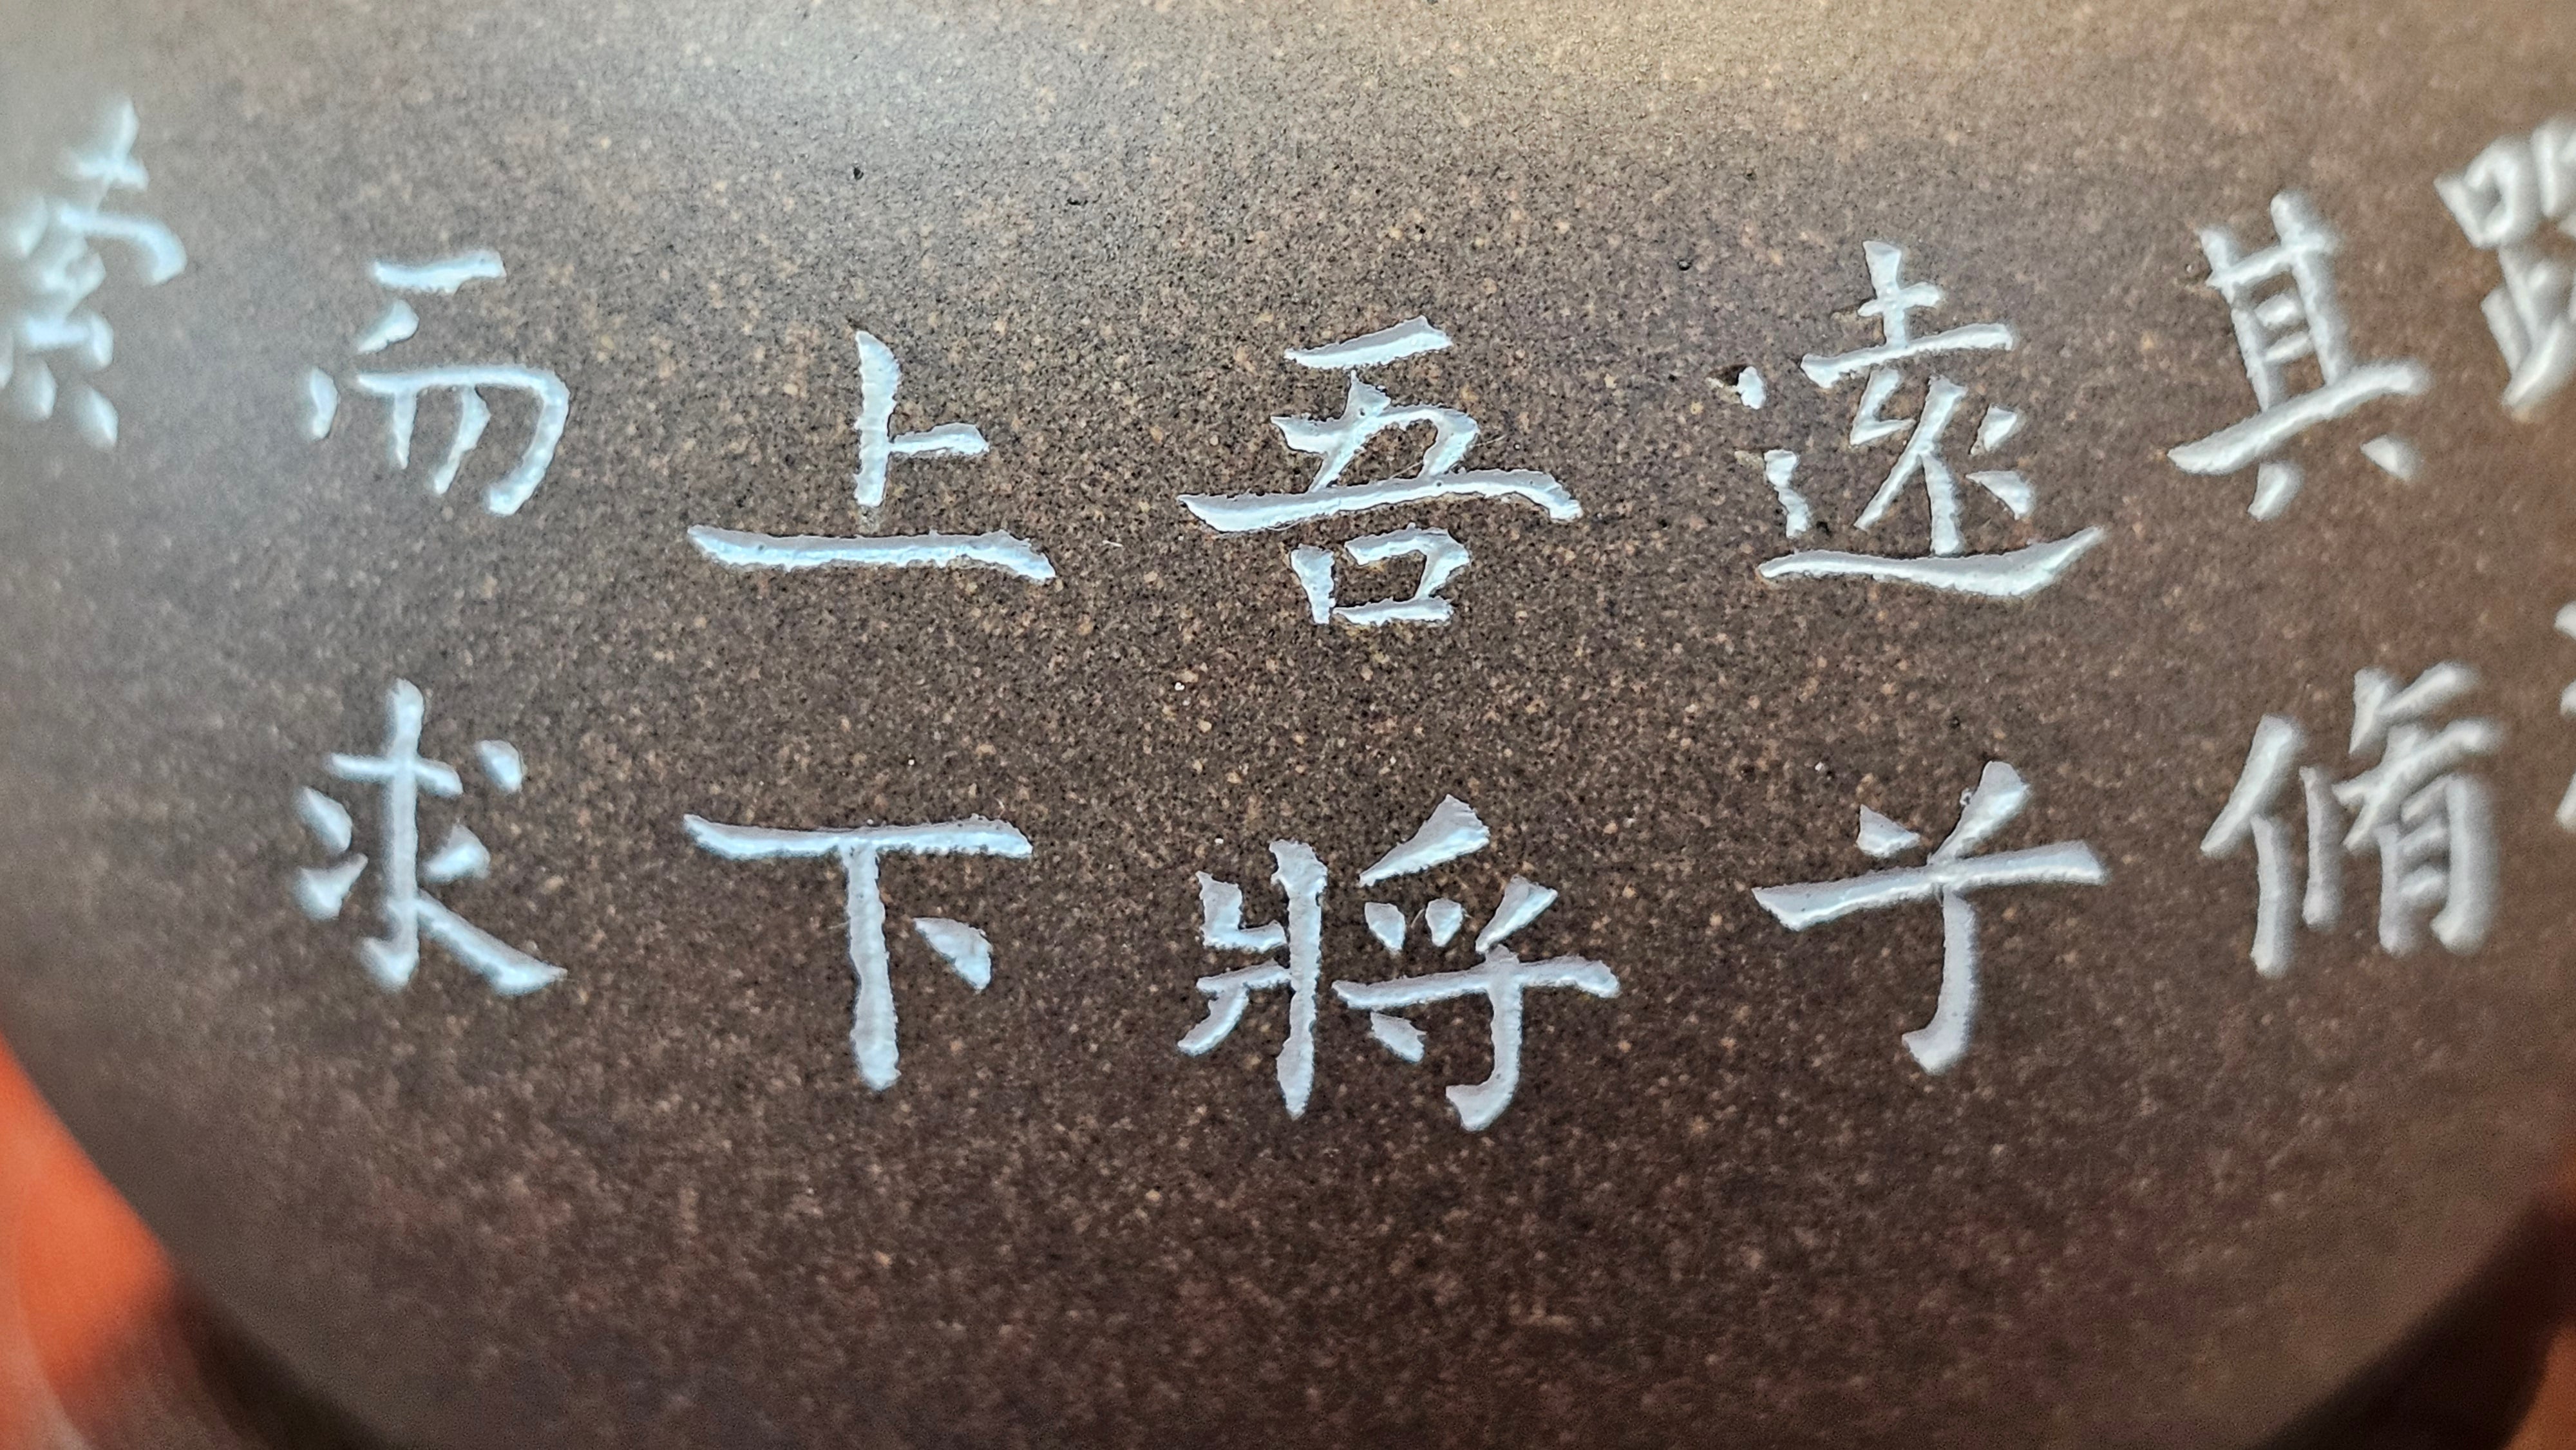 路
其脩
遠兮
吾將
上下
而求
索